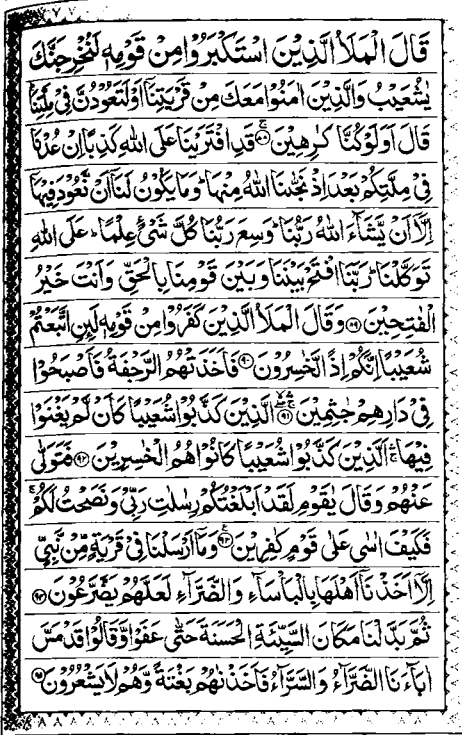 قَالَ الْمَلَاُ الَّذِيْنَ اسْتَكْبَرُوْا مِنْ قَوْمِهٖ لَنُخْرِجَنَّكَ
يٰشُعَيْبُ وَالَّذِيْنَ اٰمَنُوْا مَعَكَ مِنْ قَرْيَتِنَاۤ اَوْ لَتَعُوْدُنَّ فِيْ مِلَّتِنَا
قَالَ اَوَلَوْ كُنَّا كٰرِهِيْنَ ۟ۚ۸۸ قَدِ افْتَرَيْنَا عَلَى اللّٰهِ كَذِبًا اِنْ عُدْنَا
فِيْ مِلَّتِكُمْ بَعْدَ اِذْ نَجّٰىنَا اللّٰهُ مِنْهَا ؕ وَمَا يَكُوْنُ لَنَاۤ اَنْ نَّعُوْدَ فِيْهَاۤ
اِلَّاۤ اَنْ يَّشَآءَ اللّٰهُ رَبُّنَا ؕ وَسِعَ رَبُّنَا كُلَّ شَيْءٍ عِلْمًا ؕ عَلَى اللّٰهِ
تَوَكَّلْنَا ؕ رَبَّنَا افْتَحْ بَيْنَنَا وَبَيْنَ قَوْمِنَا بِالْحَقِّ وَاَنْتَ خَيْرُ
الْفٰتِحِيْنَ ۸۹ وَقَالَ الْمَلَاُ الَّذِيْنَ كَفَرُوْا مِنْ قَوْمِهٖ لَىِٕنِ اتَّبَعْتُمْ
شُعَيْبًا اِنَّكُمْ اِذًا لَّخٰسِرُوْنَ ۹۰ فَاَخَذَتْهُمُ الرَّجْفَةُ فَاَصْبَحُوْا
فِيْ دَارِهِمْ جٰثِمِيْنَ ۹۱ الَّذِيْنَ كَذَّبُوْا شُعَيْبًا كَاَنْ لَّمْ يَغْنَوْا
فِيْهَا ۛۚ اَلَّذِيْنَ كَذَّبُوْا شُعَيْبًا كَانُوْا هُمُ الْخٰسِرِيْنَ ۹۲ فَتَوَلّٰى
عَنْهُمْ وَقَالَ يٰقَوْمِ لَقَدْ اَبْلَغْتُكُمْ رِسٰلٰتِ رَبِّيْ وَنَصَحْتُ لَكُمْ ۚ
فَكَيْفَ اٰسٰى عَلٰى قَوْمٍ كٰفِرِيْنَ ۹۳ وَمَاۤ اَرْسَلْنَا فِيْ قَرْيَةٍ مِّنْ نَّبِيٍّ
اِلَّاۤ اَخَذْنَاۤ اَهْلَهَا بِالْبَاْسَآءِ وَالضَّرَّآءِ لَعَلَّهُمْ يَضَّرَّعُوْنَ ۹۴
ثُمَّ بَدَّلْنَا مَكَانَ السَّيِّئَةِ الْحَسَنَةَ حَتّٰى عَفَوْا وَّقَالُوْا قَدْ مَسَّ
اٰبَآءَنَا الضَّرَّآءُ وَالسَّرَّآءُ فَاَخَذْنٰهُمْ بَغْتَةً وَّهُمْ لَا يَشْعُرُوْنَ ۹۵